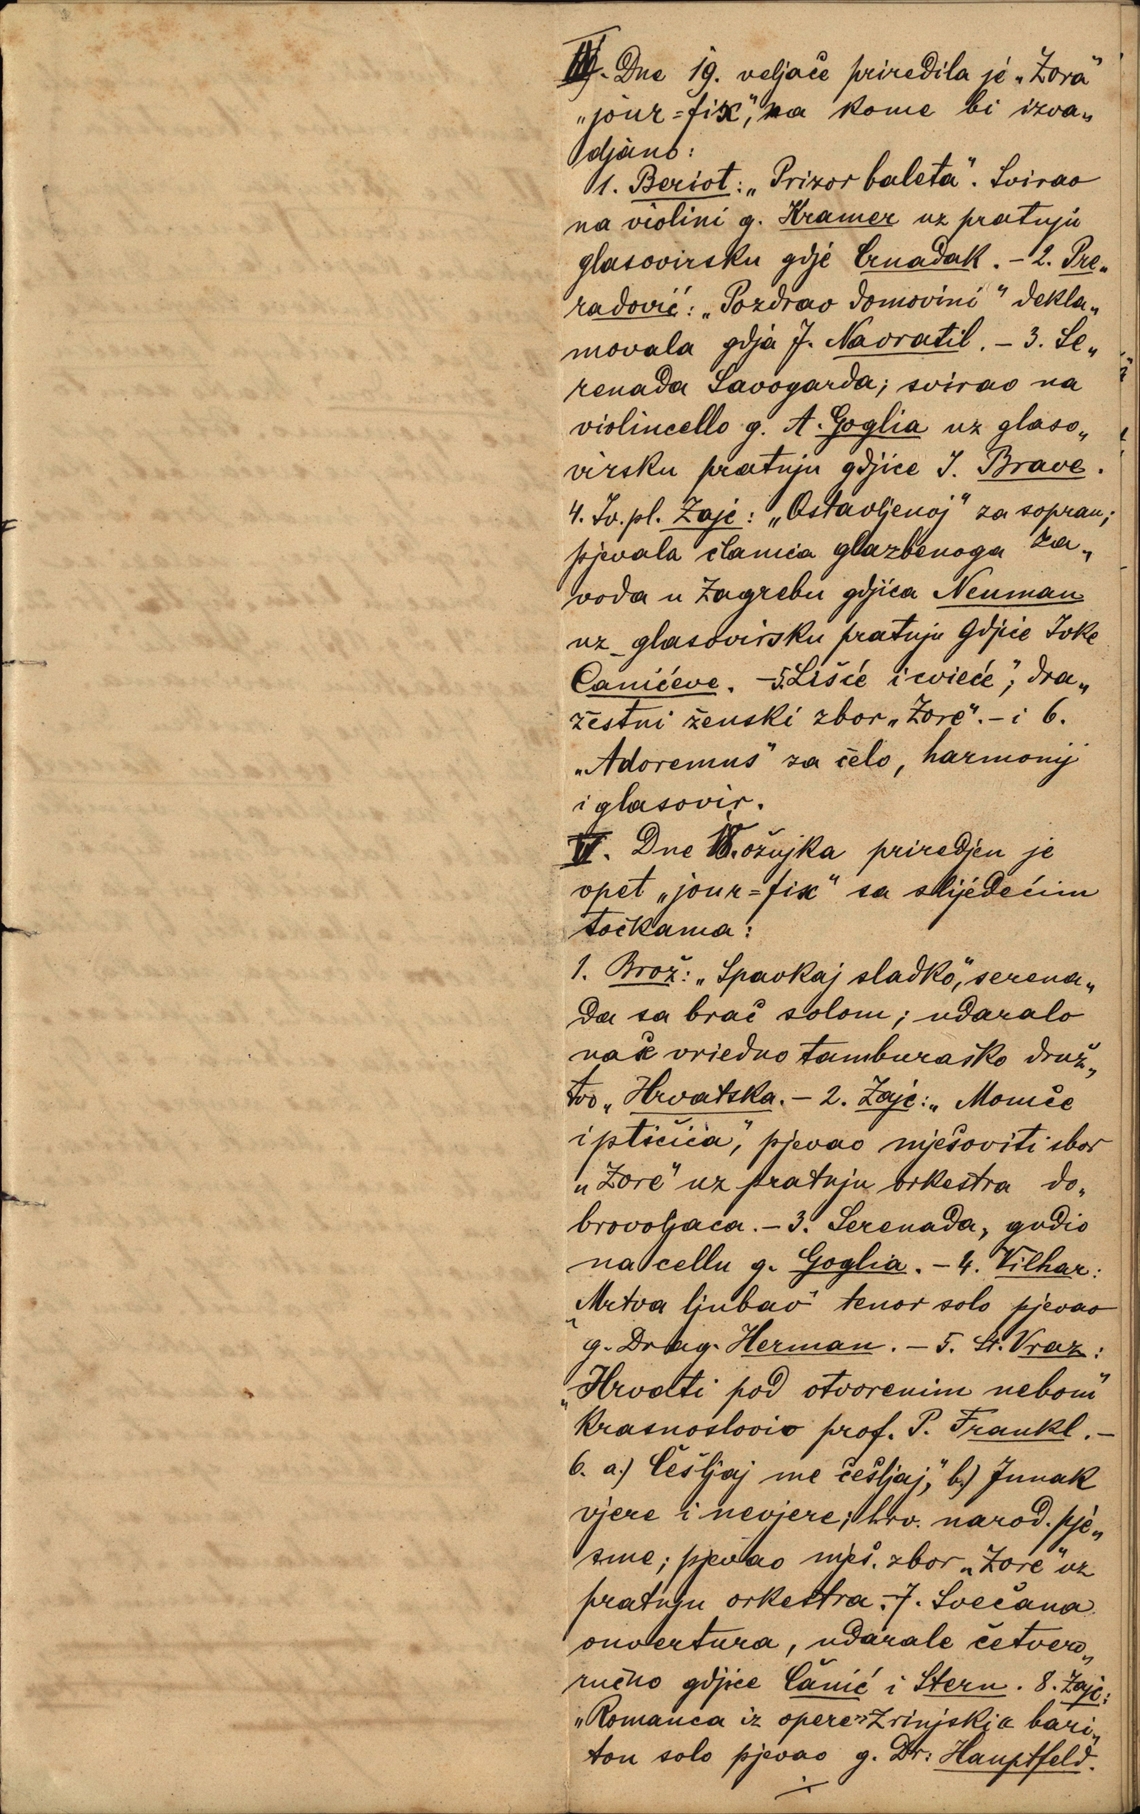 IV. Dne 19. veljače priredila je „Zora“
„jour=fix“, na kome bi izva„
djano:
1. Beriot: „Prizor baleta“. Svirao
na violini g. Kramer uz pratnju
glasovirsku gdje Crnadak. – 2. Pre„
radović: „Pozdrav domovini“ dekla„
movala gdja J. Navratil. – 3. Se„
renada Savogarda; svirao na
violincello g. A. Goglia uz glaso„
virsku pratnju gdjice I. Brave.
4. Iv. pl. Zajc: „Ostavljenoj“ za sopran;
pjevala članica glazbenoga za„
voda u Zagrebu gdjica Neuman
uz glasovirsku pratnju gdjice Ivke
Canićeve. – 5. „Lišće i cvieće“, dra„
žestni ženski zbor „Zore“. – i 6.
„Adoremus“ za čelo, harmonij
i glasovir.
V. Dne 18. ožujka priredjen je
opet „jour=fix“ sa slijedećim
točkama:
1. Brož: „Spavkaj sladko“, serena„
da sa brač solom; udaralo
naše vriedno tamburaško druž„
tvo „Hrvatska. – 2. Zajc: „Momče
i ptičica“, pjevao mješoviti sbor
„Zore“ uz pratnju orkestra do„
brovoljaca. – 3. Serenada, gudio
na cellu g. Goglia. – 4. Vilhar:
„Mrtva ljubav“ tenor solo pjevao
g. Drag. Herman. – 5. St. Vraz:
„Hrvati pod otvorenim nebom“
krasnoslovio prof. P. Frankl. –
6. a.) Češljaj me češljaj“, b.) Junak
vjere i nevjere; hrv. narod. pje„
sme; pjevao mješ. zbor „Zore“ uz
pratnju orkestra. – 7. Svečana
ouvertura, udarale četvero„
ručno gdjice Čanić i Stern. 8. Zajc:
„Romanca iz opere „Zrinjski“ bari„
ton solo pjevao g. Dr. Hauptfeld.